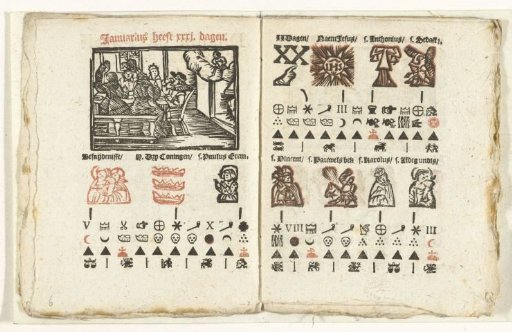 Januarius heeft xxxj. dagen.
Besnijdenisse/ H. Dry Coningen/ s. Paulus Erem.
V X
II Dagen/ Naem Jesus/ s. Anthonius/ s. Sebast.
XX IHS
III
s. Vincent/ s. Pauwels bek s. Karolus/ s. Aldegundis/
VIII X III
6